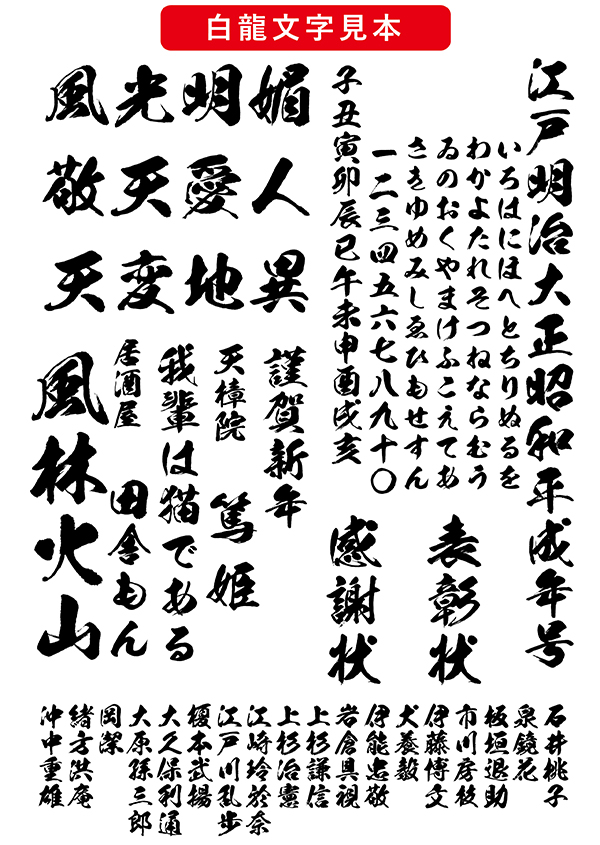 白龍文字見本
江戸明治大正昭和平成年号
いろはにほへとちりぬるを
わかよたれそつねならむう
ゐのおくやまけふこえてあ
さきゆめみしゑひもせすん
一二三四五六七八九十〇
子丑寅卯辰巳午未申酉戌亥
表彰状
感謝状
風光明媚
敬天愛人
天変地異
謹賀新年
天樟院 篤姫
我輩は猫である
居酒屋 田舎もん
風林火山
石井桃子
泉鏡花
板垣退助
市川房枝
伊藤博文
犬養毅
伊能忠敬
岩倉具視
上杉謙信
上杉治憲
江崎玲於奈
江戸川乱歩
榎本武揚
大久保利通
大原孫三郎
岡潔
緒方洪庵
沖中重雄